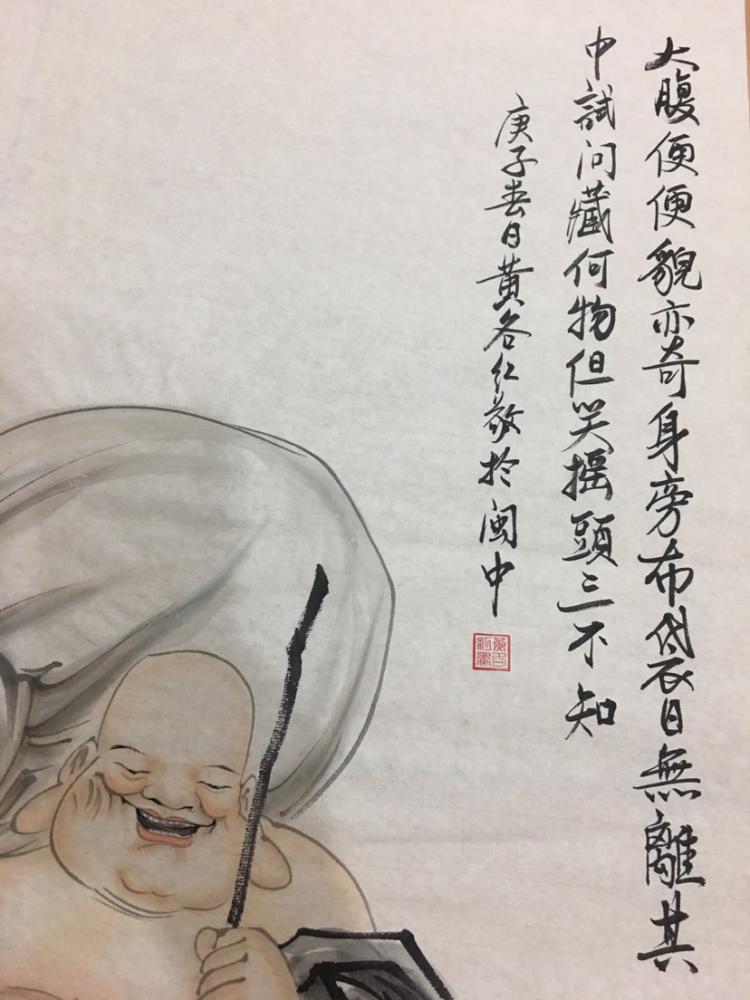 大腹便便貌亦奇身旁布袋日無離其
中試问藏何物但笑摇頭三不知
庚子春日黄各红敬於闽中